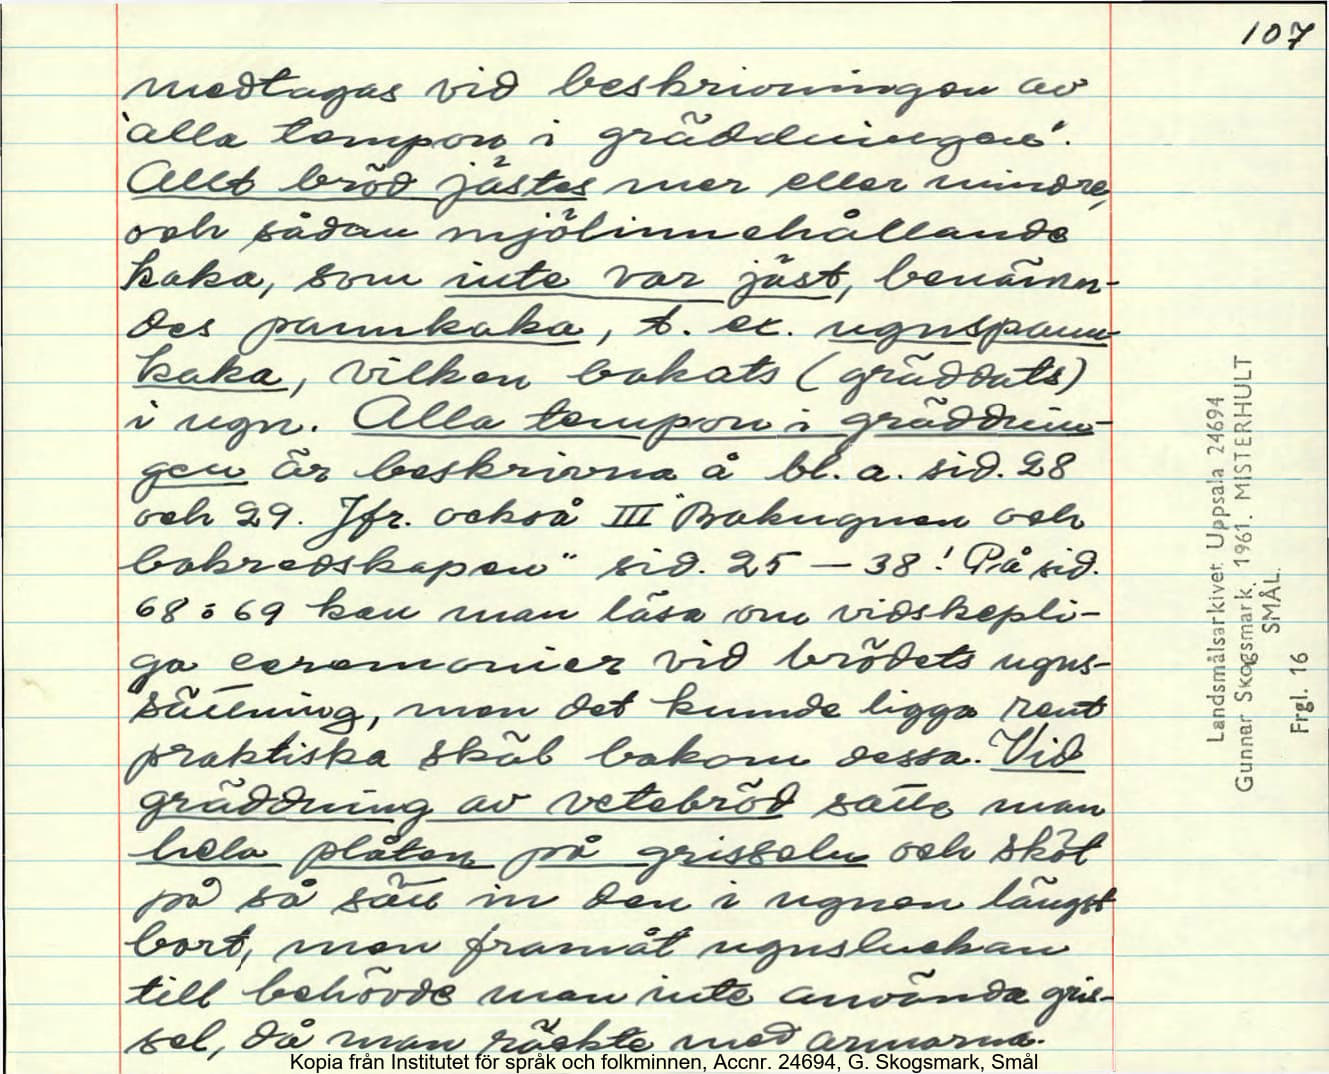 107
medtagas vid beskrivningen av
"alla tempon i gräddningen".
Allt bröd jästes mer eller mindre,
och sådan mjölinnehållande
kaka, som inte var jäst, benämn-
des pannkaka, t. ex. ugnspann-
kaka, vilken bakats (gräddats)
i ugn. Alla tempon i gräddnin-
gen är beskrivna å bl. a. sid. 28
och 29. Jfr. också III "Bakugnen och
bakredskapen" sid. 25 – 38! På sid.
68 o 69 kan man läsa om vidskepli-
ga ceremonier vid brödets ugns-
sättning, men det kunde ligga rent
praktiska skäl bakom dessa. Vid
gräddning av vetebröd satte man
hela plåten på grisseln och sköt
på så sätt in den i ugnen längst
bort, men framåt ugnsluckan
till behövde man inte använda gris-
sel, då man räckte med armarna.
Landsmålsarkivet Uppsala 24694
Gunnar Skogsmark. 1961. MISTERHULT
SMÅL.
Frgl. 16
Kopia från Institutet för språk och folkminnen, Accnr. 24694, G. Skogsmark, Smål